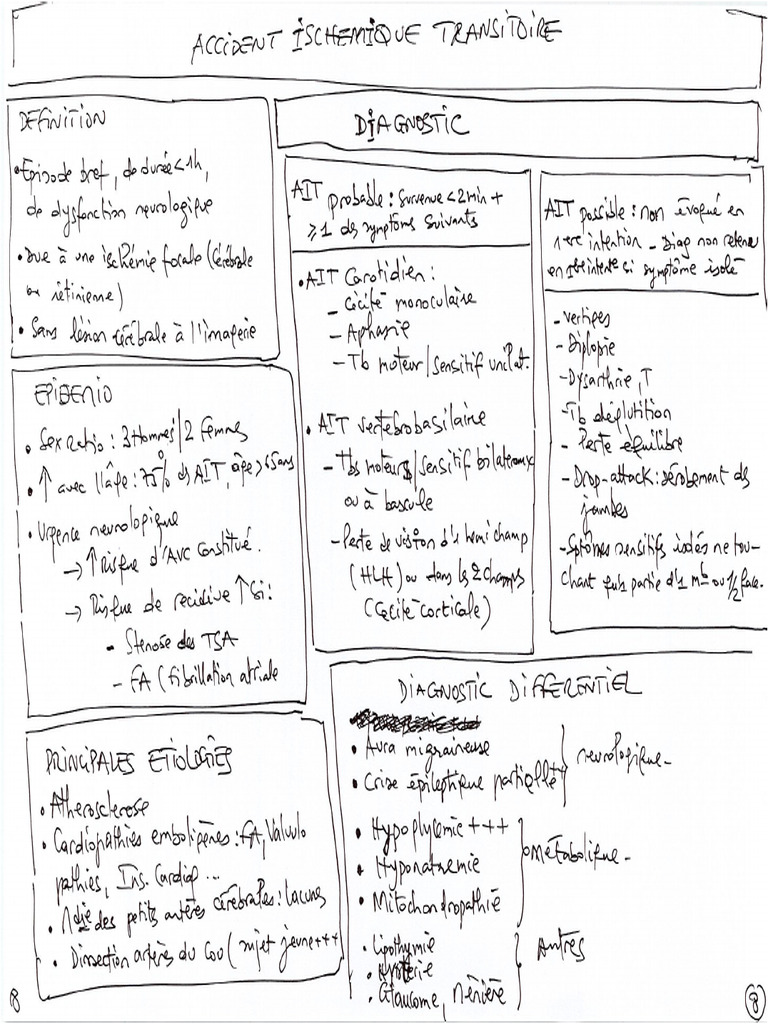 ACCIDENT ISCHEMIQUE TRANSITOIRE
DEFINITION
• Episode bref, de durée < 1h,
de dysfonction neurologique
• due à une ischémie focale (cérébrale
ou rétinienne)
• Sans lésion cérébrale à l'imagerie
EPIDEMIO
• Sex ratio : 3 Hommes / 2 femmes
• ↑ avec l'âge : 75% des AIT, âge > 65ans
• Urgence neurologique
→ ↑ Risque d'AVC constitué.
→ Risque de récidive ↑ si :
- Sténose des TSA
- FA (fibrillation atriale
PRINCIPALES ETIOLOGIES
• Atherosclerose
• Cardiopathies emboligènes : FA, Valvulo
pathies, Ins. Cardiaq ...
• Mdie des petits artères cérébrales : lacunes
• Dissection artères du cou (sujet jeune+++
DIAGNOSTIC
AIT probable : Survenue < 2 min +
≥ 1 des symptoms suivants
• AIT Carotidien :
- Cécité monoculaire
- Aphasie
- Tb moteur / sensitif unilat.
• AIT vertébrobasilaire
- Tbs moteurs / sensitif bilateraux
ou à bascule
- Perte de vision d'1 hémichamp
(HLH) ou dans les 2 champs
(Cécité corticale)
AIT possible : non évoqué en
1ere intention - Diag non retenu
en 1ere intent° si symptôme isolé
- vertiges
- Diplopie
- Dysarthrie,
- Tb déglutition
- Perte équilibre
- Drop-attack : dérobement des
jambes
- Sptômes sensitifs isolés ne tou-
chant qu'1 partie d'1 mb ou 1/2 face.
DIAGNOSTIC DIFFERENTIEL
• Aura migraineuse
• Crise épileptique partielle++
neurologique
• Hypoglycemie +++
• Hyponatremie
• Mitochondropathie
Métabolique
• Lipothymie
• Hystérie
• Glaucome, Ménière
Autres
8
8